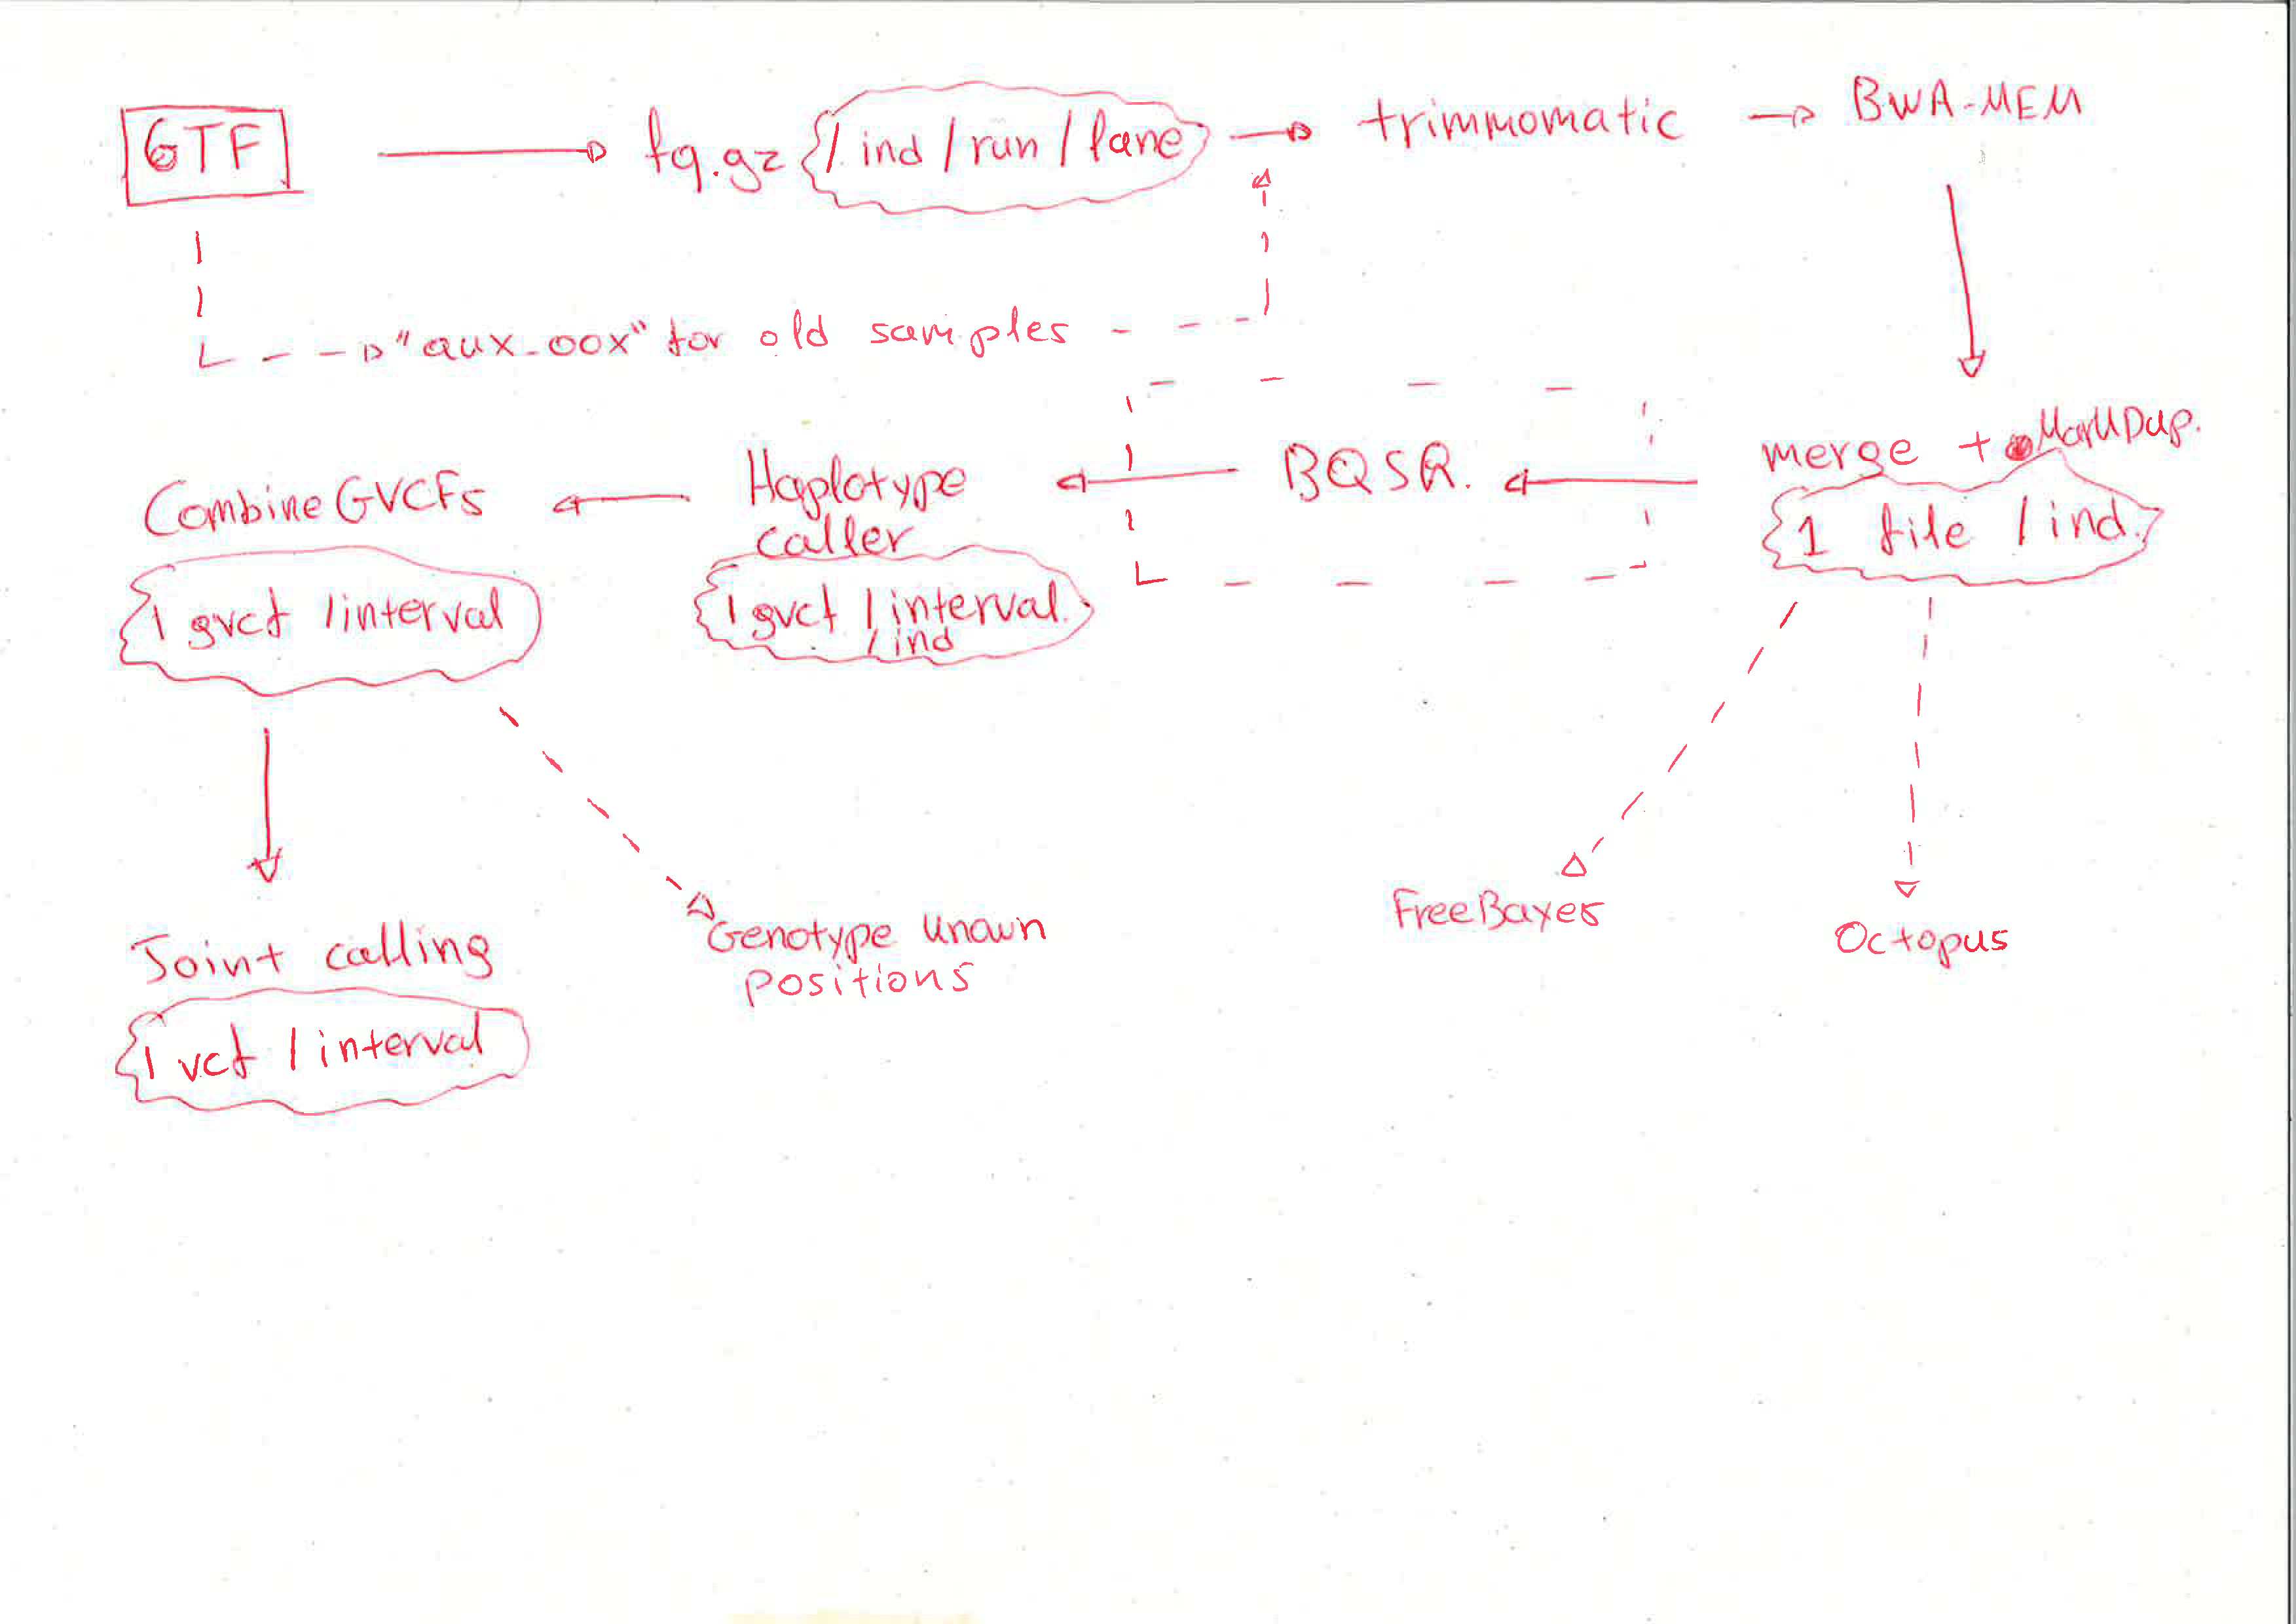 GTF
fq.gz / ind / run / lane
trimmomatic
BWA-MEM
"aux_00x" for old samples
merge + MarkDup.
1 file / ind.
BQSR.
Haplotype
caller
1 gvcf / interval
/ ind
CombineGVCFs
1 gvcf / interval
Joint calling
1 vcf / interval
Genotype known
positions
FreeBayes
Octopus